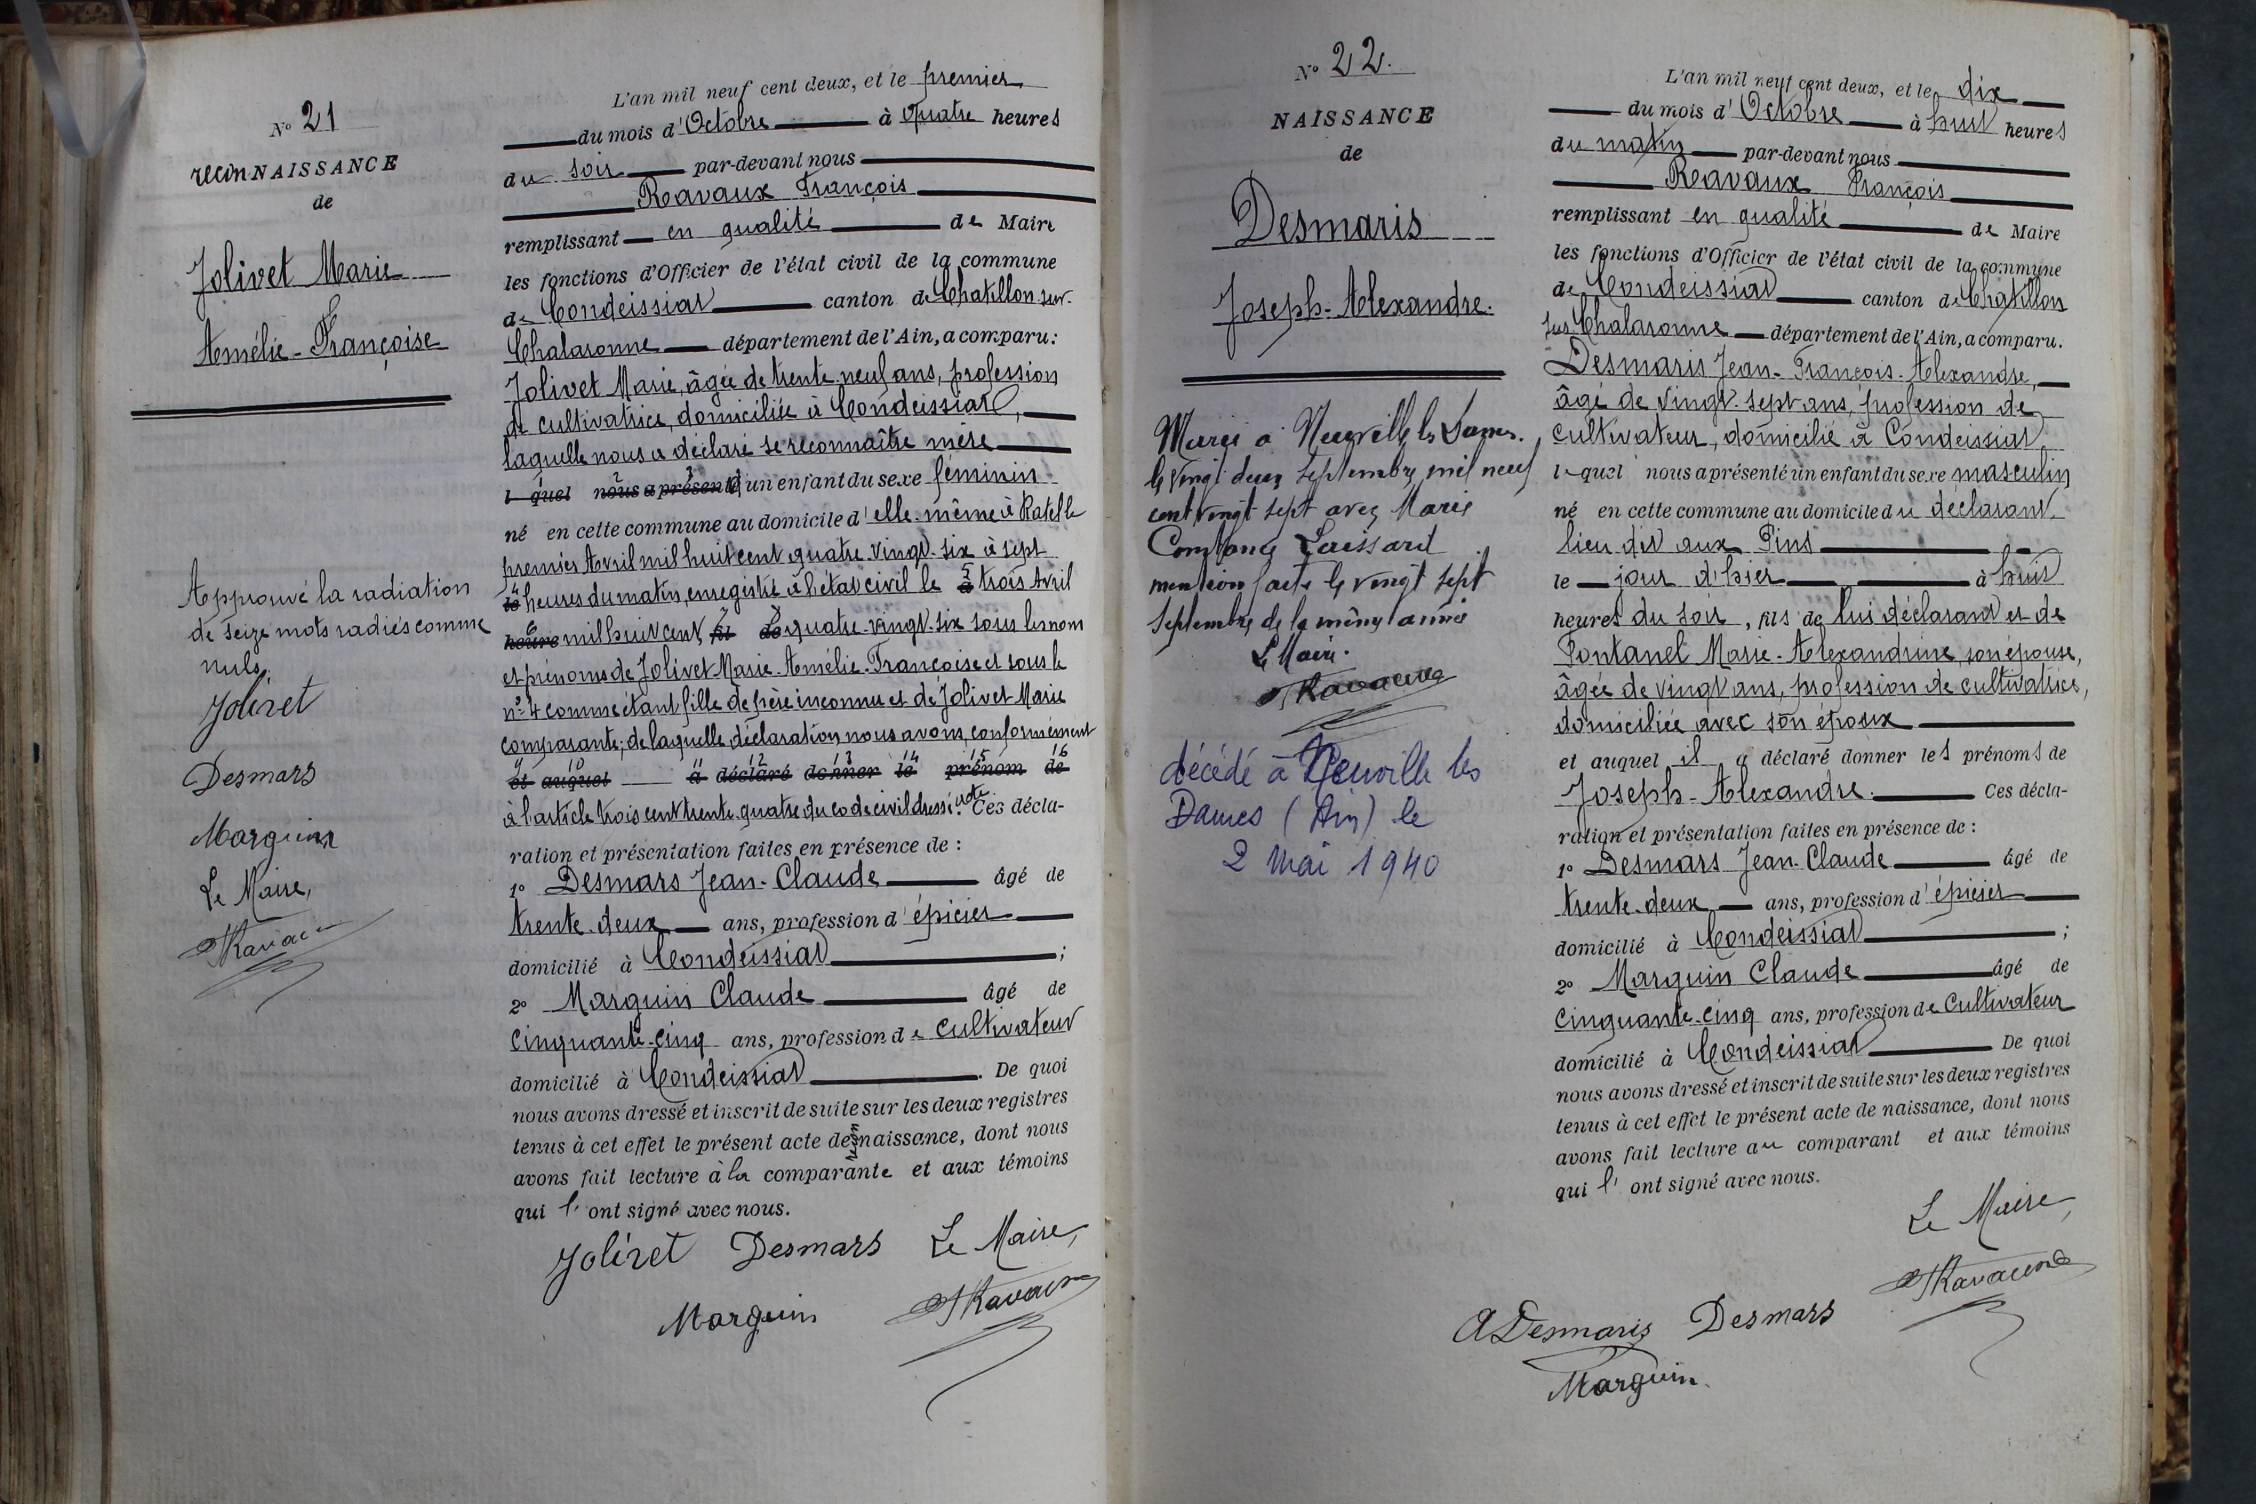 N° 21
reconNAISSANCE
de
Jolivet Marie
Amélie-Françoise
Approuvé la radiation
de seize mots radiés comme
nuls.
Jolivet
Desmars
Marguin
Le Maire,
Ravaux
L'an mil neuf cent deux, et le premier
du mois d'Octobre à quatre heures
du soir par-devant nous
Ravaux François
remplissant en qualité de Maire
les fonctions d'Officier de l'état civil de la commune
de Condeissiat canton de Chatillon-sur-
Chalaronne département de l'Ain, a comparu:
Jolivet Marie, âgée de trente-neuf ans, profession
de cultivatrice, domiciliée à Condeissiat,
laquelle nous a déclaré se reconnaître mère
l quel nous a présenté d'un enfant du sexe féminin
né en cette commune au domicile d'elle-même à Ratelle
premier Avril mil huit cent quatre-vingt-six à sept
le heures du matin, enregistré à l'état civil le à trois Avril
heure mil huit cent fil de quatre-vingt-six sous les nom
et prénoms de Jolivet Marie-Amélie-Françoise et sous le
n° 4 comme étant fille de père inconnu et de Jolivet Marie
comparante; de laquelle déclaration nous avons, conformément
et auquel a déclaré donner le prénom de
à l'article trois cent trente-quatre du code civil dressé acte. Ces décla-
ration et présentation faites en présence de :
1° Desmars Jean-Claude âgé de
trente-deux ans, profession d'épicier
domicilié à Condeissiat ;
2° Marguin Claude âgé de
cinquante-cinq ans, profession de cultivateur
domicilié à Condeissiat. De quoi
nous avons dressé et inscrit de suite sur les deux registres
tenus à cet effet le présent acte de reconnaissance, dont nous
avons fait lecture à la comparante et aux témoins
qui l'ont signé avec nous.
Jolivet Desmars Le Maire,
Marguin Ravaux
N° 22.
NAISSANCE
de
Desmaris
Joseph-Alexandre.
Marié à Neuville les Dames.
le vingt deux septembre mil neuf
cent vingt sept avec Marie
Constance Laissard
mention faite le vingt sept
septembre de la même année
Le Maire.
Ravaux
décédé à Neuville les
Dames (Ain) le
2 mai 1940
L'an mil neuf cent deux, et le dix
du mois d'Octobre à huit heures
du matin par-devant nous
Ravaux François
remplissant en qualité de Maire
les fonctions d'Officier de l'état civil de la commune
de Condeissiat canton de Chatillon
sur Chalaronne département de l'Ain, a comparu.
Desmaris Jean-François-Alexandre,
âgé de vingt-sept ans, profession de
cultivateur, domicilié à Condeissiat
lequel nous a présenté un enfant du sexe masculin
né en cette commune au domicile du déclarant
lieu dit aux Pins
le jour d'hier à huit
heures du soir, fils de lui déclarant et de
Fontanel Marie-Alexandrine son épouse,
âgée de vingt ans, profession de cultivatrice,
domiciliée avec son époux
et auquel il a déclaré donner les prénoms de
Joseph-Alexandre. Ces décla-
ration et présentation faites en présence de :
1° Desmars Jean-Claude âgé de
trente-deux ans, profession d'épicier
domicilié à Condeissiat ;
2° Marguin Claude âgé de
cinquante-cinq ans, profession de cultivateur
domicilié à Condeissiat De quoi
nous avons dressé et inscrit de suite sur les deux registres
tenus à cet effet le présent acte de naissance, dont nous
avons fait lecture au comparant et aux témoins
qui l'ont signé avec nous.
Le Maire,
Ravaux
ADesmaris Desmars
Marguin.